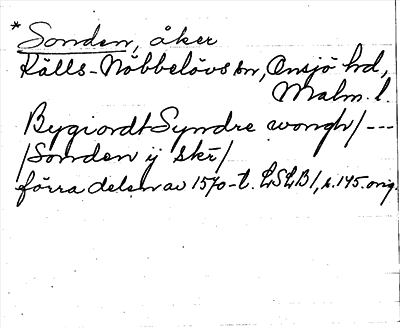 * Sonden, åker
Källs-Nöbbelövs sn, Onsjö hd,
Malm. l.
Bygiordt Syndre wongh/ ---
/Sonden ij skr/
förra delen av 1570-t. LSLB1, s. 145. orig.